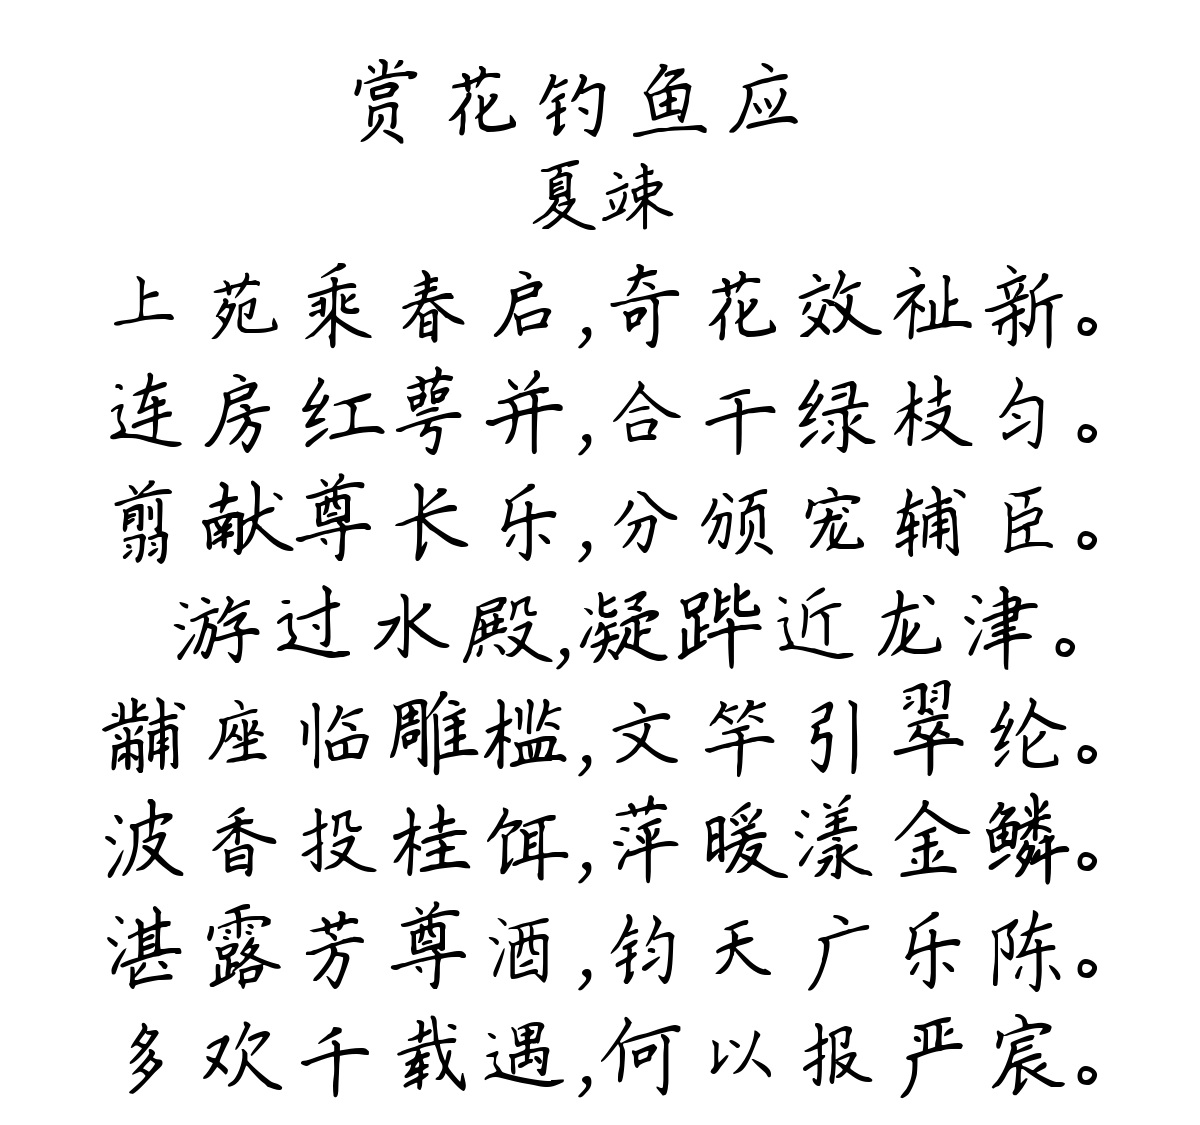 赏花钓鱼应
夏竦
上苑乘春启,奇花效祉新。
连房红萼并,合干绿枝匀。
剪献尊长乐,分颁宠辅臣。
游过水殿,凝跸近龙津。
黼座临雕槛,文竿引翠纶。
波香投桂饵,萍暖漾金鳞。
湛露芳尊酒,钧天广乐陈。
多欢千载遇,何以报严宸。